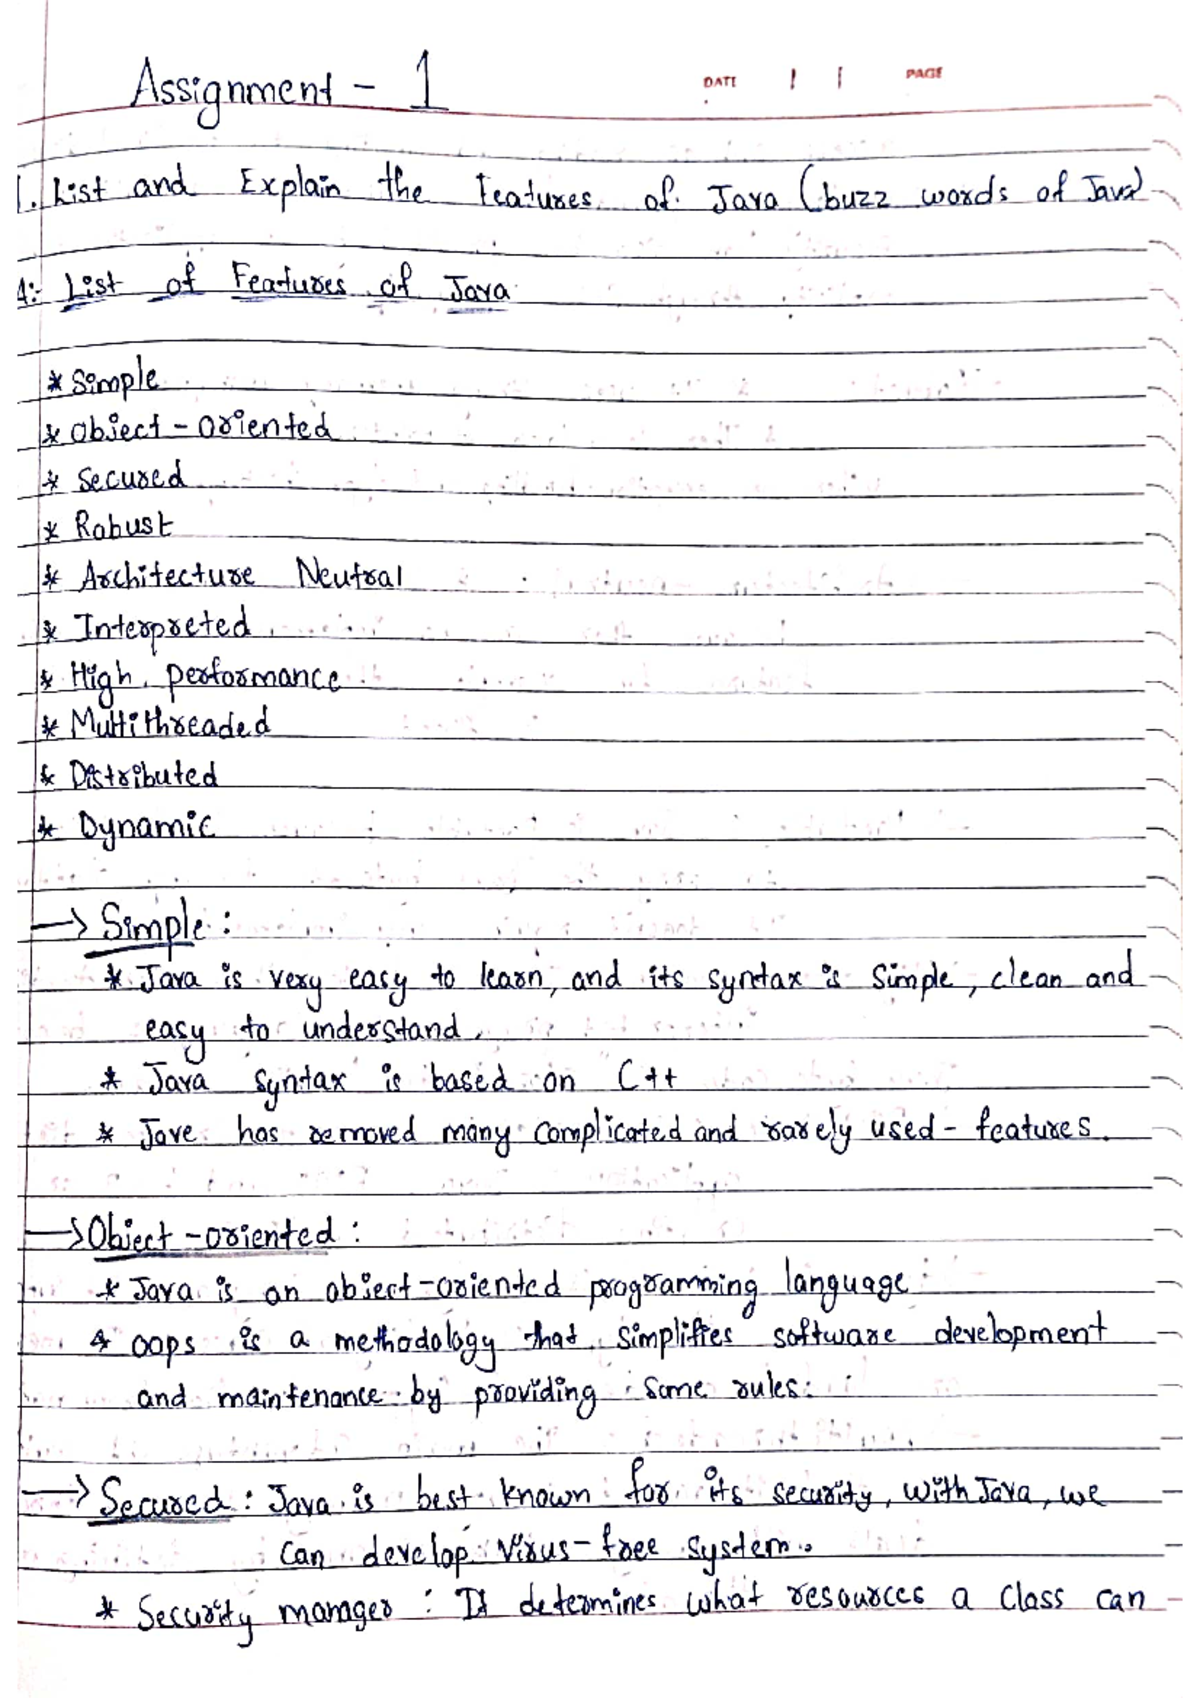 Assignment - 1
DATE / / PAGE
1. List and Explain the Features of Java (buzz words of Java)
A: List of Features of Java
* Simple
* Object - Oriented
* Secured
* Robust
* Architecture Neutral
* Interpreted
* High performance
* Multithreaded
* Distributed
* Dynamic
→ Simple :
* Java is very easy to learn, and its syntax is Simple, clean and
easy to understand.
* Java syntax is based on C++
* Jave has removed many complicated and rarely used - features.
→ Object - oriented :
* Java is an object-oriented programming language
* oops is a methodology that simplifies software development
and maintenance by providing some rules.
→ Secured : Java is best known for its security, with Java, we
can develop virus-free system.
* Security manager : It determines what resources a class can